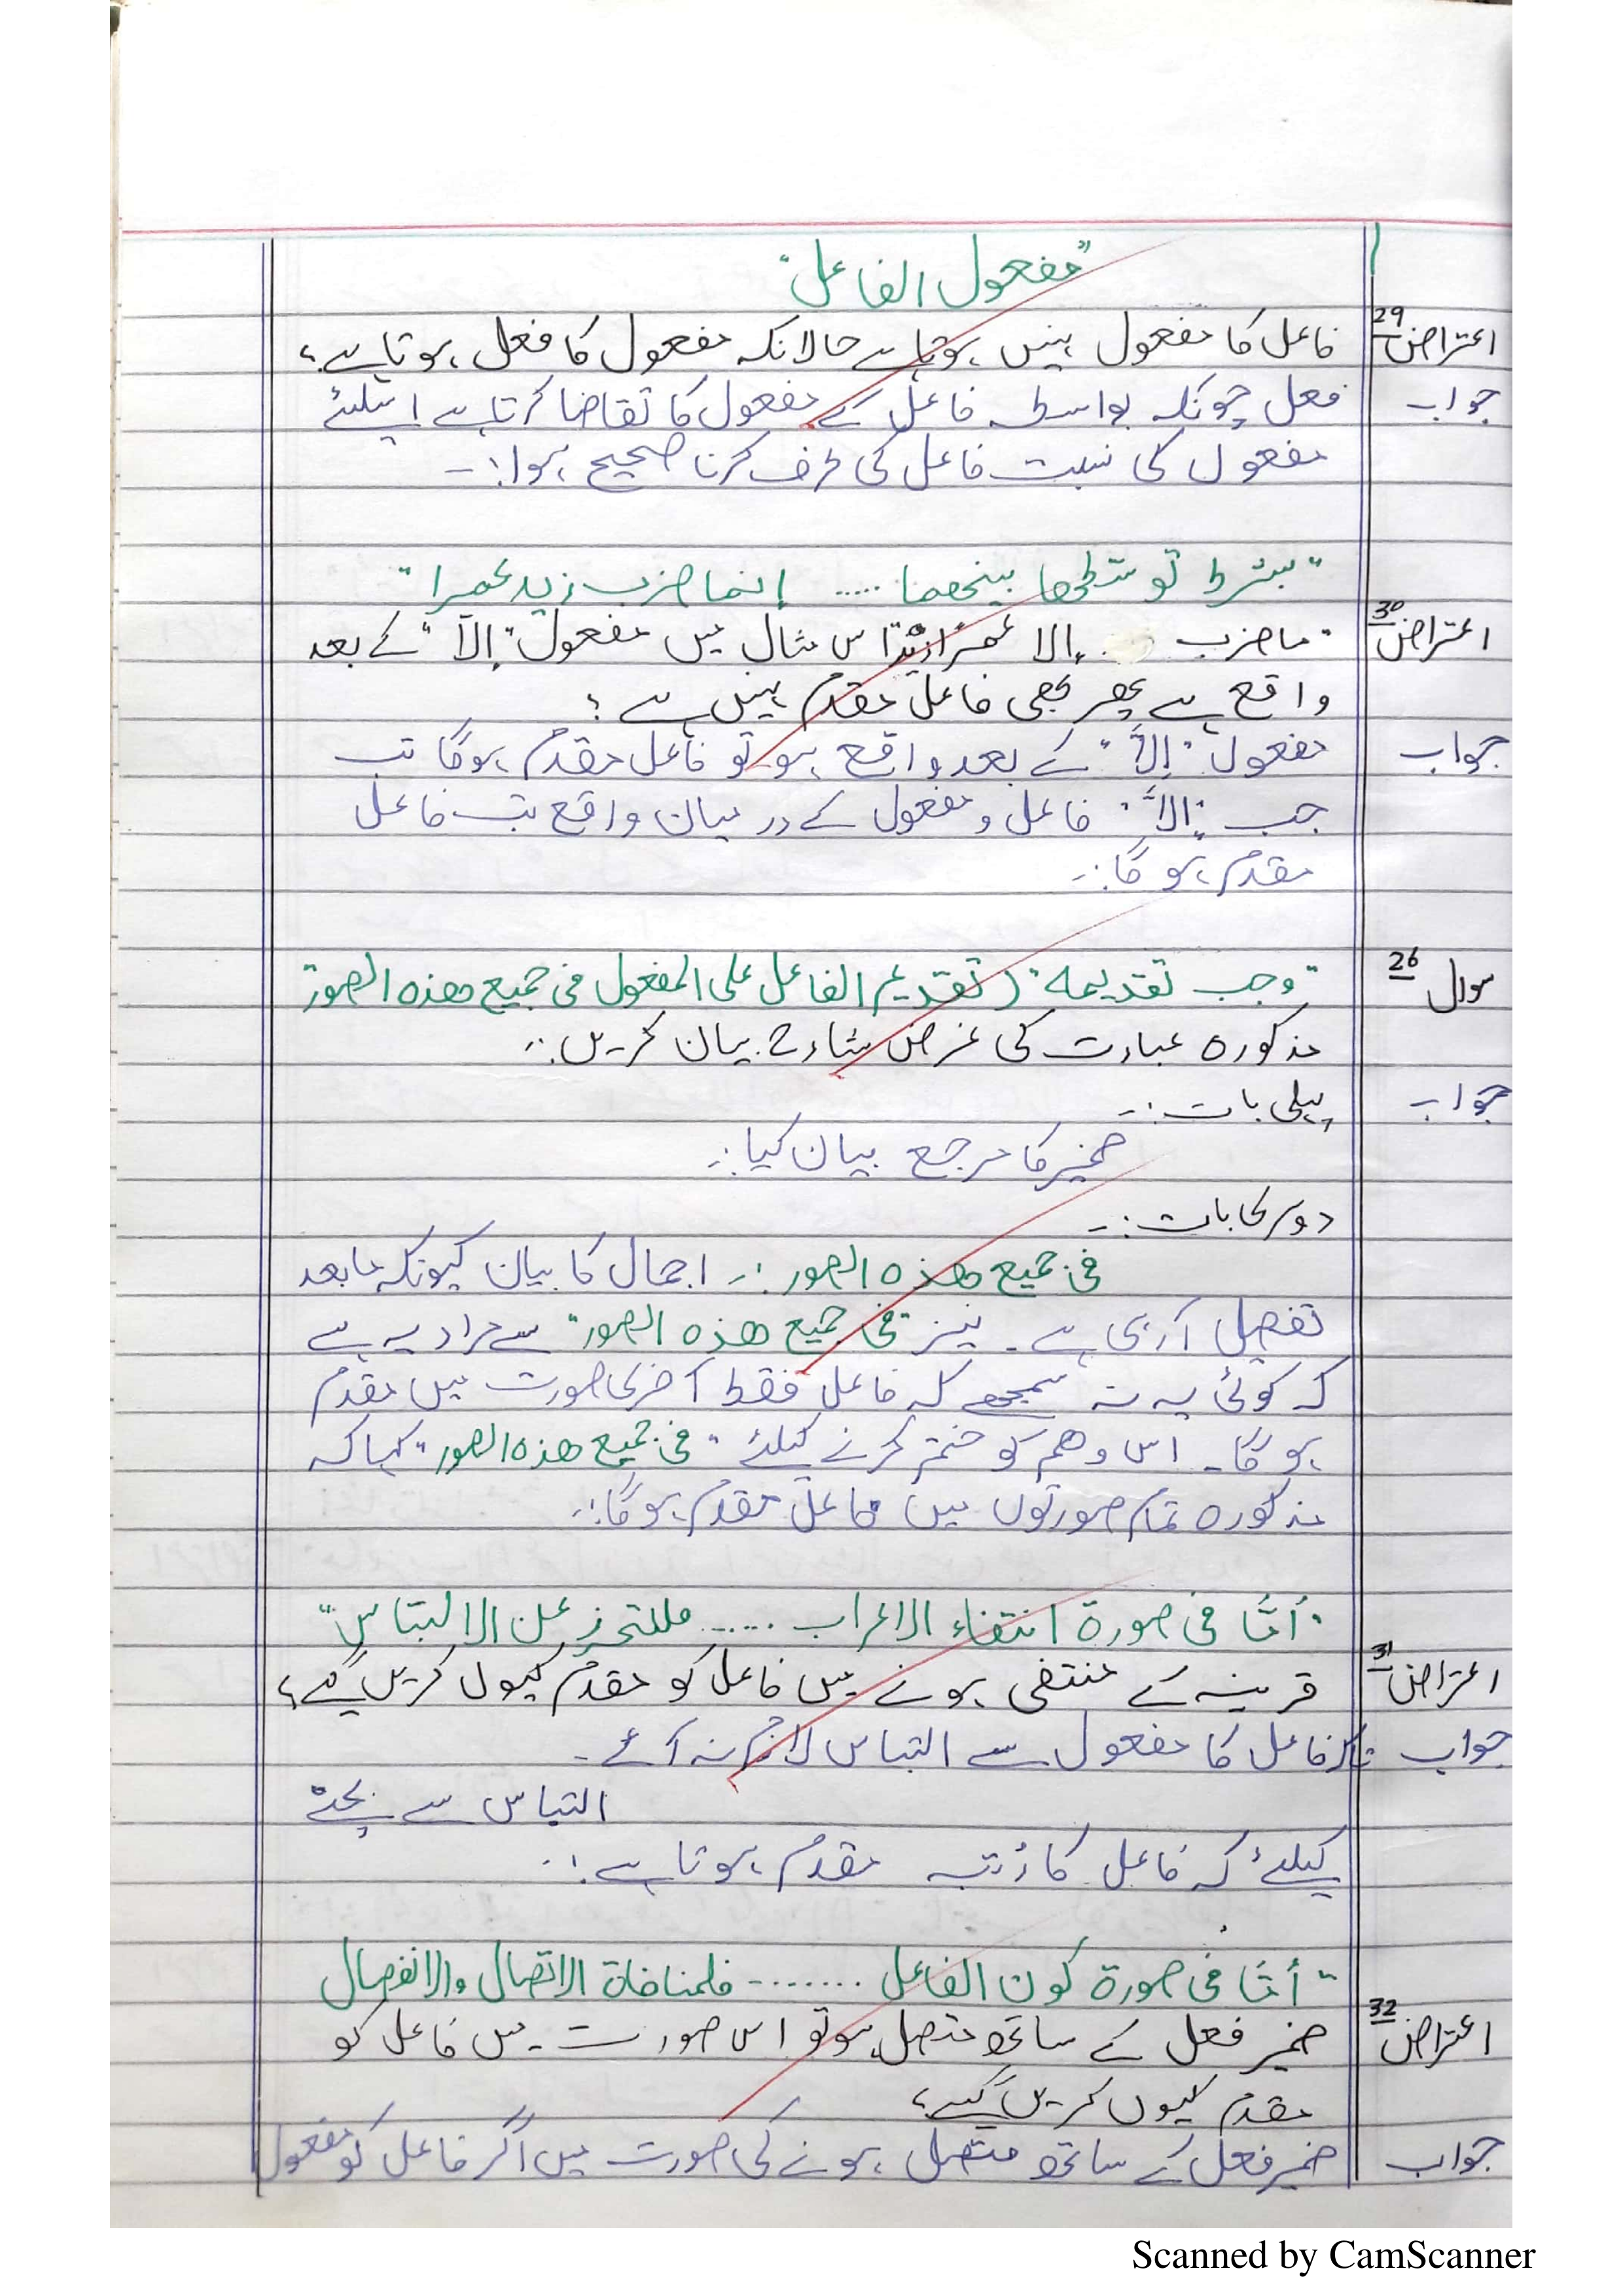 "مفعول الفاعل"
اعتراض 29 فاعل کا مفعول نہیں ہوتا ہے حالانکہ مفعول کا فعل ہوتا ہے؟
جواب فعل چونکہ بواسطہ فاعل کے مفعول کا تقاضا کرتا ہے اسلئے
مفعول کی نسبت فاعل کی طرف کرنا صحیح ہوا:۔
"بشرط توسطها بينهما ..... إنما ضرب زيد عمرا"
اعتراض 30 "ما ضرب إلا عمرًا زيدٌ" اس مثال میں مفعول "إلّا" کے بعد
واقع ہے پھر بھی فاعل مقدم نہیں ہے؟
جواب مفعول "إلّا" کے بعد واقع ہو تو فاعل مقدم ہوگا تب
جب "إلّا" فاعل و مفعول کے درمیان واقع تب فاعل
مقدم ہوگا:۔
سوال 26 "وجب تقديمه" (تقديم الفاعل على المفعول فى جميع هذه الصور
مذکورہ عبارت کی غرض شارح بیان کریں:۔
جواب پہلی بات:۔
ضمیر کا مرجع بیان کیا:۔
دوسری بات:۔
فى جميع هذه الصور:۔ اجمال کا بیان کیونکہ مابعد
تفصیل آرہی ہے۔ نیز "فى جميع هذه الصور" سے مراد یہ ہے
کہ کوئی یہ نہ سمجھے کہ فاعل فقط آخری صورت میں مقدم
ہوگا۔ اس وھم کو ختم کرنے کیلئے "فى جميع هذه الصور" کہا کہ
مذکورہ تمام صورتوں میں فاعل مقدم ہوگا:۔
"أمّا فى صورة انتفاء الاعراب ...... فللتحرز عن الالتباس"
اعتراض 31 قرینہ کے منتفی ہونے میں فاعل کو مقدم کیوں کریں گے؟
جواب تاکہ فاعل کا مفعول سے التباس لازم نہ آئے۔
التباس سے بچنے
کیلئے کہ فاعل کا رتبہ مقدم ہوتا ہے:۔
"أمّا فى صورة كون الفاعل ........ فلمنافاة الاتصال والانفصال
اعتراض 32 ضمیر فعل کے ساتھ متصل ہو تو اس صورت میں فاعل کو
مقدم کیوں کریں گے؟
جواب ضمیر فعل کے ساتھ متصل ہونے کی صورت میں اگر فاعل کو مفعول
Scanned by CamScanner